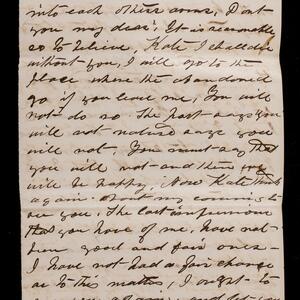 into each others arms, Dont
you my dear? It is reasonable
so to believe, Kate I shall die
without you, I will go to the
place where the abandoned
go if you leave me, You will
not do so. The past says you
will not nature says you
will not. You must say that
you will not and then we
will be happy, Now Kate think
again about my coming to
see you. The last impressions
that you have of me, have not
been good and fair ones —
I have not had a fair chance
as to this matter, I ought to
you again, and